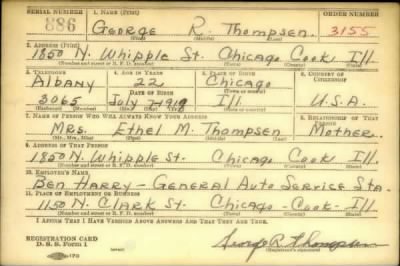 SERIAL NUMBER 1. NAME (Print) ORDER NUMBER
886 George R. Thompsen 3155
(First) (Middle) (Last)
2. ADDRESS (Print)
1850 N. Whipple St. Chicago Cook Ill.
(Number and street or R. F. D. number) (Town) (County) (State)
3. TELEPHONE 4. AGE IN YEARS 5. PLACE OF BIRTH 6. COUNTRY OF CITIZENSHIP
Albany 22 Chicago
DATE OF BIRTH
3065 July 7 1918 Ill. U.S.A.
7. NAME OF PERSON WHO WILL ALWAYS KNOW YOUR ADDRESS 8. RELATIONSHIP OF THAT PERSON
Mrs. Ethel M. Thompsen Mother
9. ADDRESS OF THAT PERSON
1850 N. Whipple St. Chicago Cook Ill.
(Number and street or R. F. D. number) (Town) (County) (State)
10. EMPLOYER'S NAME
Ben Harry - General Auto Service Sta.
11. PLACE OF EMPLOYMENT OR BUSINESS
1150 N. Clark St. Chicago - Cook - Ill.
(Number and street or R. F. D. number) (Town) (County) (State)
I AFFIRM THAT I HAVE VERIFIED ABOVE ANSWERS AND THAT THEY ARE TRUE.
REGISTRATION CARD
D. S. S. Form 1 George R. Thompsen
(Registrant's signature)